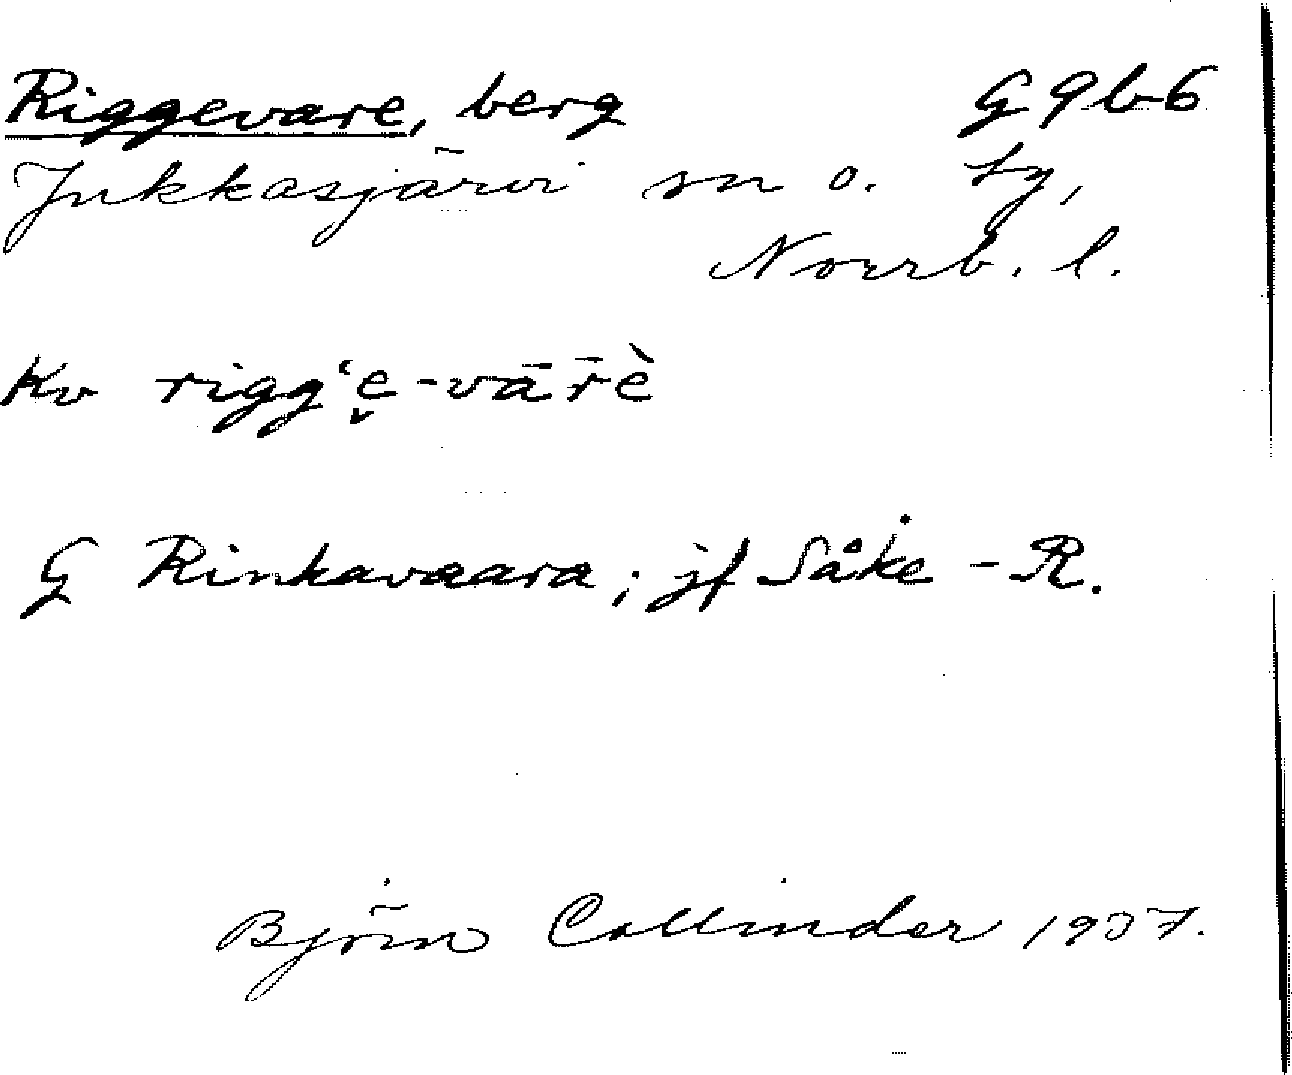 Riggevare, berg G 9 b 6
Jukkasjärvi sn o. tg,
Norrb. l.
Kv rigg‘e̬-vār̄è
G Rinkavaara; jf Såke-R.
Björn Collinder 1937.